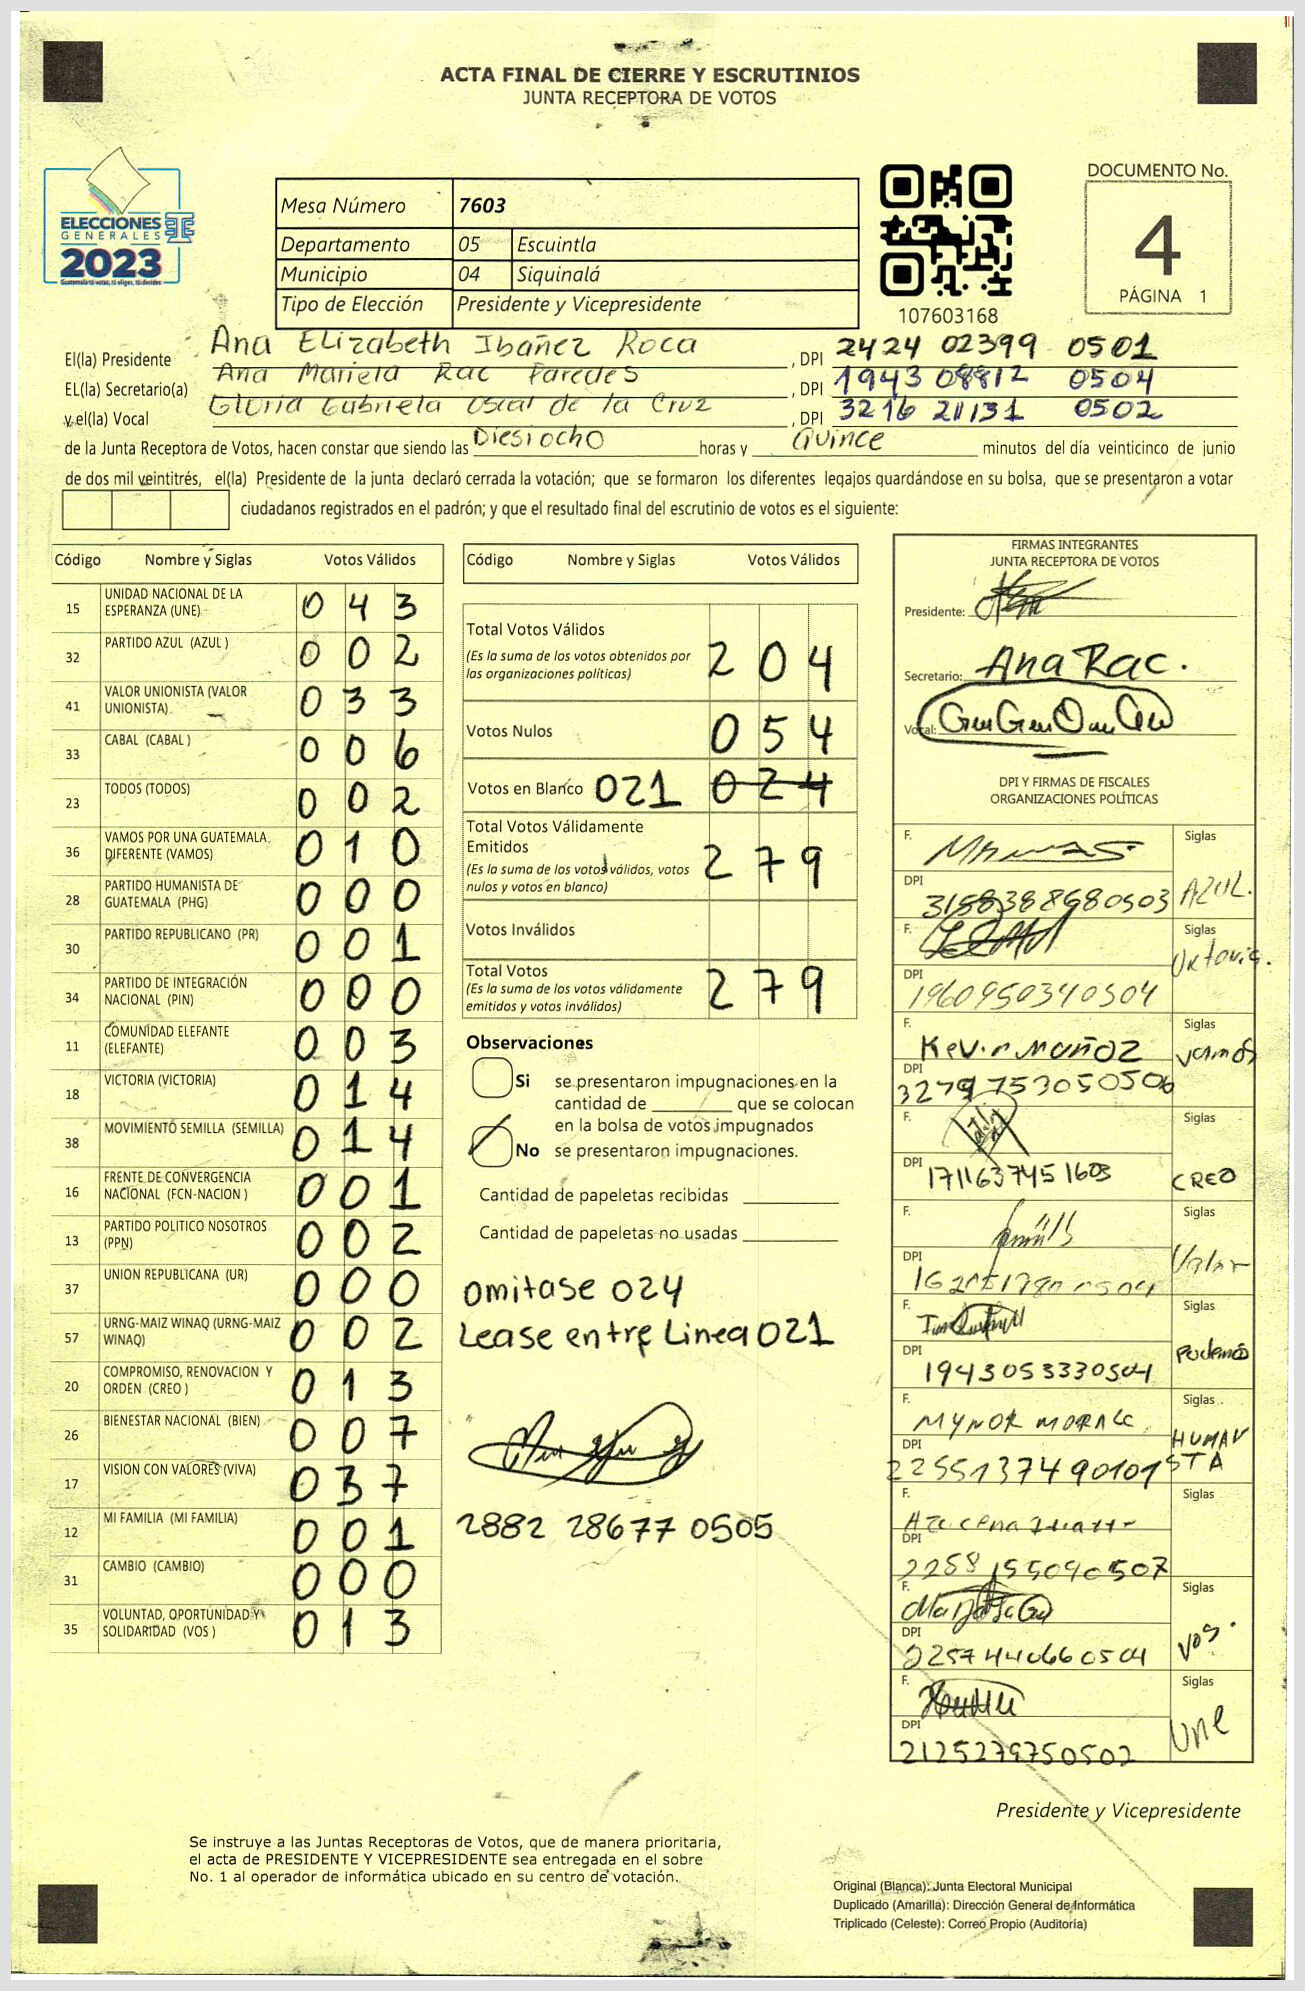 ACTA FINAL DE CIERRE Y ESCRUTINIOS
JUNTA RECEPTORA DE VOTOS
ELECCIONES
GENERALES
2023
Guatemala tú votas, tú eliges, tú decides
Mesa Número 7603
Departamento 05 Escuintla
Municipio 04 Siquinalá
Tipo de Elección Presidente y Vicepresidente
107603168
DOCUMENTO No.
4
PÁGINA 1
El(la) Presidente Ana Elizabeth Ibañez Roca , DPI 2424 02399 0501
EL(la) Secretario(a) Ana Mariela Rac Paredes , DPI 1943 08812 0504
y el(la) Vocal Gloria Gabriela Oscal de la Cruz , DPI 3216 21131 0502
de la Junta Receptora de Votos, hacen constar que siendo las Diesiocho horas y Quince minutos del día veinticinco de junio
de dos mil veintitrés, el(la) Presidente de la junta declaró cerrada la votación; que se formaron los diferentes legajos quardándose en su bolsa, que se presentaron a votar
ciudadanos registrados en el padrón; y que el resultado final del escrutinio de votos es el siguiente:
Código Nombre y Siglas Votos Válidos
15 UNIDAD NACIONAL DE LA ESPERANZA (UNE) 0 4 3
32 PARTIDO AZUL (AZUL ) 0 0 2
41 VALOR UNIONISTA (VALOR UNIONISTA) 0 3 3
33 CABAL (CABAL ) 0 0 6
23 TODOS (TODOS) 0 0 2
36 VAMOS POR UNA GUATEMALA DIFERENTE (VAMOS) 0 1 0
28 PARTIDO HUMANISTA DE GUATEMALA (PHG) 0 0 0
30 PARTIDO REPUBLICANO (PR) 0 0 1
34 PARTIDO DE INTEGRACIÓN NACIONAL (PIN) 0 0 0
11 COMUNIDAD ELEFANTE (ELEFANTE) 0 0 3
18 VICTORIA (VICTORIA) 0 1 4
38 MOVIMIENTO SEMILLA (SEMILLA) 0 1 4
16 FRENTE DE CONVERGENCIA NACIONAL (FCN-NACION ) 0 0 1
13 PARTIDO POLITICO NOSOTROS (PPN) 0 0 2
37 UNION REPUBLICANA (UR) 0 0 0
57 URNG-MAIZ WINAQ (URNG-MAIZ WINAQ) 0 0 2
20 COMPROMISO, RENOVACION Y ORDEN (CREO ) 0 1 3
26 BIENESTAR NACIONAL (BIEN) 0 0 7
17 VISION CON VALORES (VIVA) 0 3 7
12 MI FAMILIA (MI FAMILIA) 0 0 1
31 CAMBIO (CAMBIO) 0 0 0
35 VOLUNTAD, OPORTUNIDAD Y SOLIDARIDAD (VOS ) 0 1 3
Código Nombre y Siglas Votos Válidos
Total Votos Válidos 2 0 4
(Es la suma de los votos obtenidos por
las organizaciones políticas)
Votos Nulos 0 5 4
Votos en Blanco 021 0 2 4
Total Votos Válidamente
Emitidos 2 7 9
(Es la suma de los votos válidos, votos
nulos y votos en blanco)
Votos Inválidos
Total Votos 2 7 9
(Es la suma de los votos válidamente
emitidos y votos inválidos)
Observaciones
Si se presentaron impugnaciones en la
cantidad de ________ que se colocan
en la bolsa de votos impugnados
No se presentaron impugnaciones.
Cantidad de papeletas recibidas
Cantidad de papeletas no usadas
omitase 024
Lease entre Linea 021
2882 28677 0505
FIRMAS INTEGRANTES
JUNTA RECEPTORA DE VOTOS
Presidente:
Secretario: Ana Rac.
Vocal:
DPI Y FIRMAS DE FISCALES
ORGANIZACIONES POLÍTICAS
F. Siglas AZUL.
DPI 3158388680503
F. Siglas
DPI 1960950340504
F. Kevin Muñoz Siglas vamos
DPI 3279753050506
F. Siglas CREO
DPI 1711637451603
F. Siglas Valor
DPI
F. Siglas Podemos
DPI 1943053330504
F. MYNOR MORALE Siglas HUMANISTA
DPI 2255137490101
F. Siglas
DPI 2258155090507
F. Siglas VOS.
DPI 2257440660504
F. Siglas Une
DPI 2125279750502
Presidente y Vicepresidente
Se instruye a las Juntas Receptoras de Votos, que de manera prioritaria,
el acta de PRESIDENTE Y VICEPRESIDENTE sea entregada en el sobre
No. 1 al operador de informática ubicado en su centro de votación.
Original (Blanca): Junta Electoral Municipal
Duplicado (Amarilla): Dirección General de Informática
Triplicado (Celeste): Correo Propio (Auditoría)